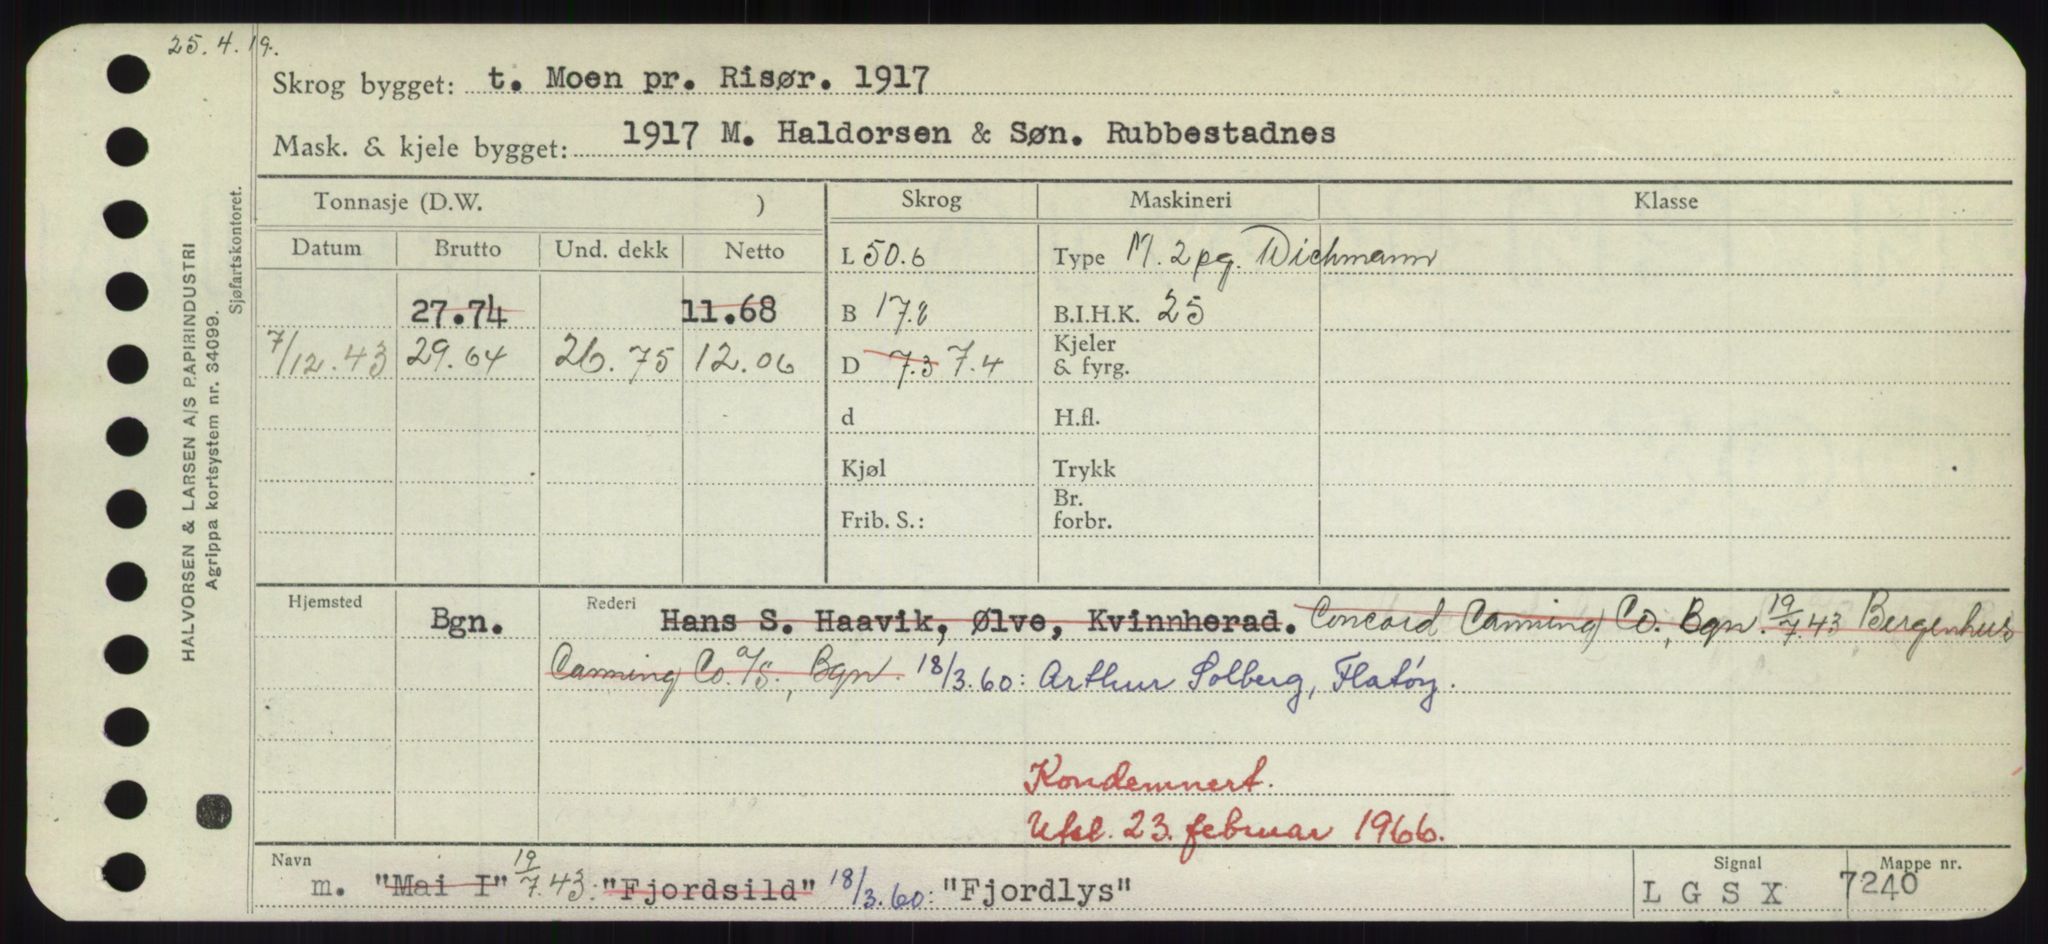 25.4.19.
Skrog bygget: t. Moen pr. Risør. 1917
Mask. & kjele bygget: 1917 M. Haldorsen & Søn. Rubbestadnes
Tonnasje (D.W. ) Skrog Maskineri Klasse
Datum Brutto Und. dekk Netto L 50.6 Type M. 2 pg. Wichmann
27.74 11.68 B 17.8 B.I.H.K. 25
7/12.43 29.64 26.75 12.06 D 7.3 7.4 Kjeler & fyrg.
d H.fl.
Kjøl Trykk
Frib. S.: Br. forbr.
Hjemsted Bgn. Rederi Hans S. Haavik, Ølve, Kvinnherad. Concord Canning Co., Bgn. 19/7.43 Bergenhus
Canning Co. a/s., Bgn. 18/3.60: Arthur Solberg, Flatøy.
Kondemnert.
Utsl. 23. februar 1966.
Navn Signal Mappe nr.
m. "Mai I" 19/7.43: "Fjordsild" 18/3.60: "Fjordlys" L G S X 7240
HALVORSEN & LARSEN A/S PAPIRINDUSTRI
Agrippa kortsystem nr. 34099.
Sjøfartskontoret.